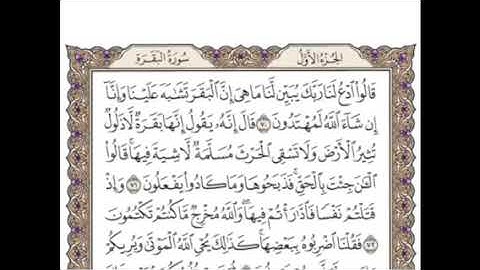 الجزء الأول
سورة البقرة
قَالُوا۟ ٱدْعُ لَنَا رَبَّكَ يُبَيِّن لَّنَا مَا هِىَ إِنَّ ٱلْبَقَرَ تَشَـٰبَهَ عَلَيْنَا وَإِنَّآ
إِن شَآءَ ٱللَّهُ لَمُهْتَدُونَ ٧٠ قَالَ إِنَّهُۥ يَقُولُ إِنَّهَا بَقَرَةٌ لَّا ذَلُولٌ
تُثِيرُ ٱلْأَرْضَ وَلَا تَسْقِى ٱلْحَرْثَ مُسَلَّمَةٌ لَّا شِيَةَ فِيهَا ۚ قَالُوا۟
ٱلْـَٔـٰنَ جِئْتَ بِٱلْحَقِّ ۚ فَذَبَحُوهَا وَمَا كَادُوا۟ يَفْعَلُونَ ٧١ وَإِذْ
قَتَلْتُمْ نَفْسًا فَٱدَّٰرَْٰٔتُمْ فِيهَا ۖ وَٱللَّهُ مُخْرِجٌ مَّا كُنتُمْ تَكْتُمُونَ
٧٢ فَقُلْنَا ٱضْرِبُوهُ بِبَعْضِهَا ۚ كَذَٰلِكَ يُحْىِ ٱللَّهُ ٱلْمَوْتَىٰ وَيُرِيكُمْ